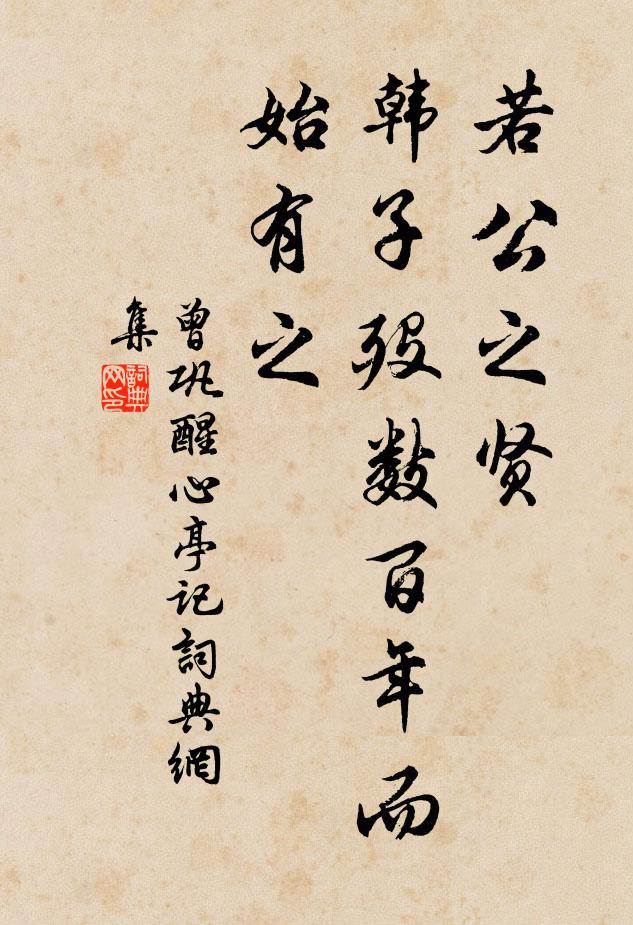 若公之贤
韩子殁数百年而
始有之
曾巩醒心亭记詞典網
集
詞典网印